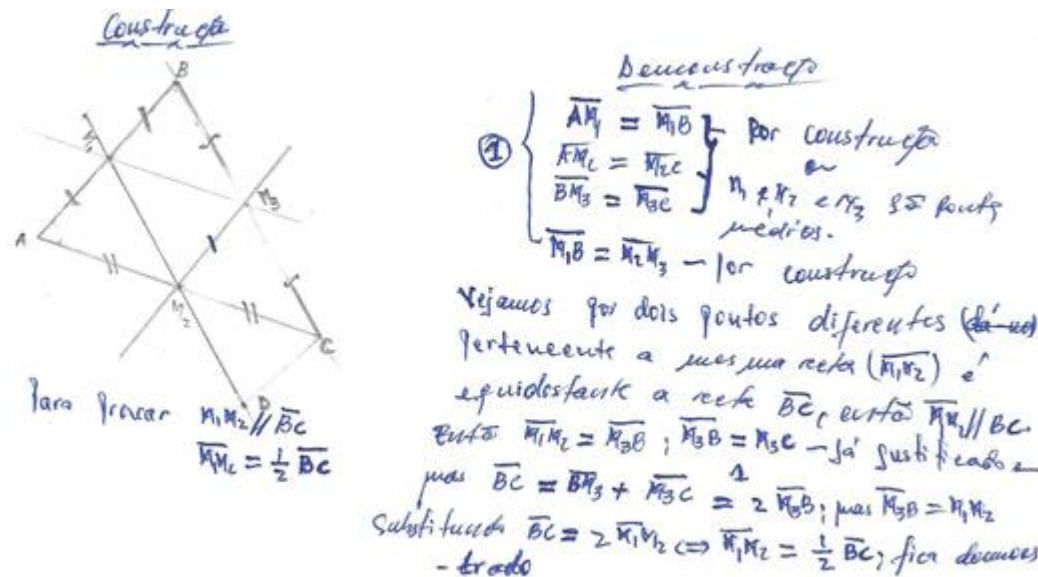 Construção
B
M1
M3
A
M2
C
D
Para provar M1M2 // BC
M1M2 = 1/2 BC
Demonstração
1
AM1 = M1B
AM2 = M2C
BM3 = M3C
por construção
ou
M1, M2 e M3 são pontos
médios.
M1B = M2M3 - por construção
Vejamos que dois pontos diferentes
Pertencente a mesma reta (M1M2) é
equidistante a reta BC, então M1M2 // BC.
Então M1M2 = M3B ; M3B = M3C - já justificado e
mas BC = BM3 + M3C =1 2 M3B ; mas M3B = M1M2
Substituindo BC = 2 M1M2 <=> M1M2 = 1/2 BC ; fica demons
- trado